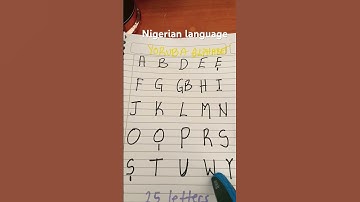 Nigerian language
YORUBA Alphabet!
A B D E Ẹ
F G GB H I
J K L M N
O Ọ P R S
Ṣ T U W Y
25 letters